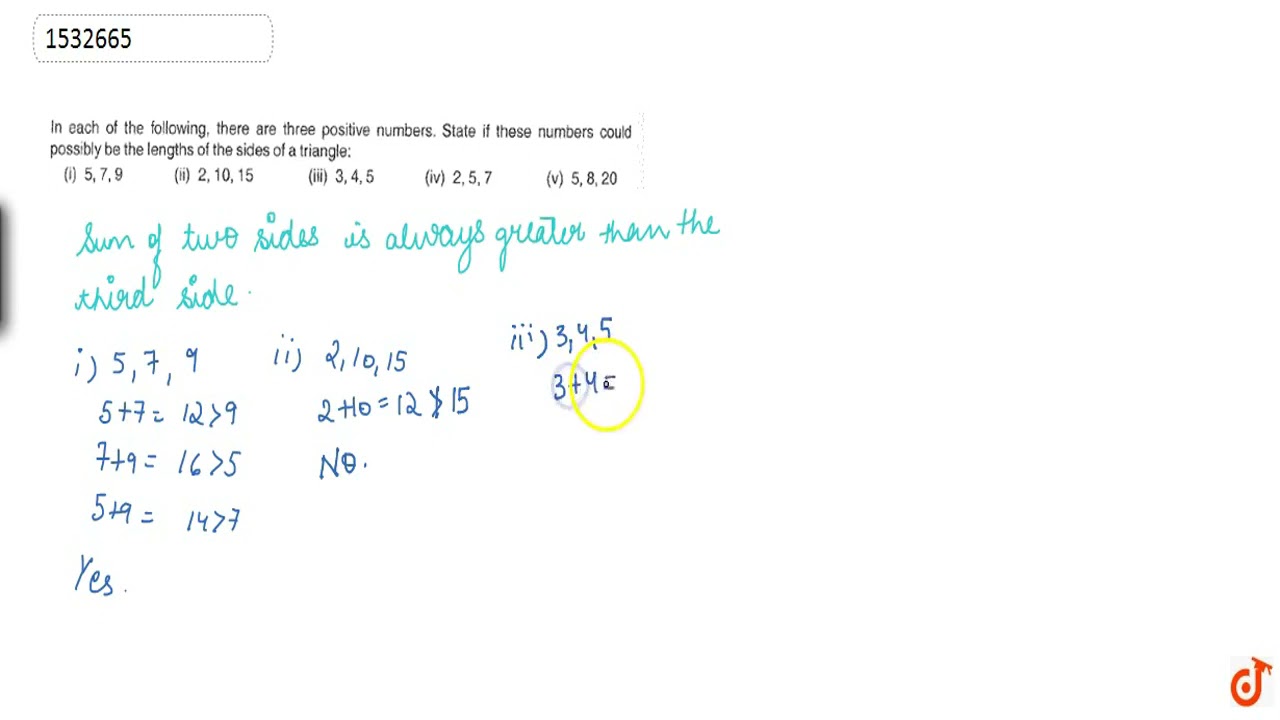 1532665
In each of the following, there are three positive numbers. State if these numbers could
possibly be the lengths of the sides of a triangle:
(i) 5, 7, 9 (ii) 2, 10, 15 (iii) 3, 4, 5 (iv) 2, 5, 7 (v) 5, 8, 20
Sum of two sides is always greater than the
third side.
i) 5, 7, 9
5+7 = 12>9
7+9 = 16>5
5+9 = 14>7
Yes.
ii) 2, 10, 15
2+10 = 12 ≯ 15
No.
iii) 3, 4, 5
3+4=